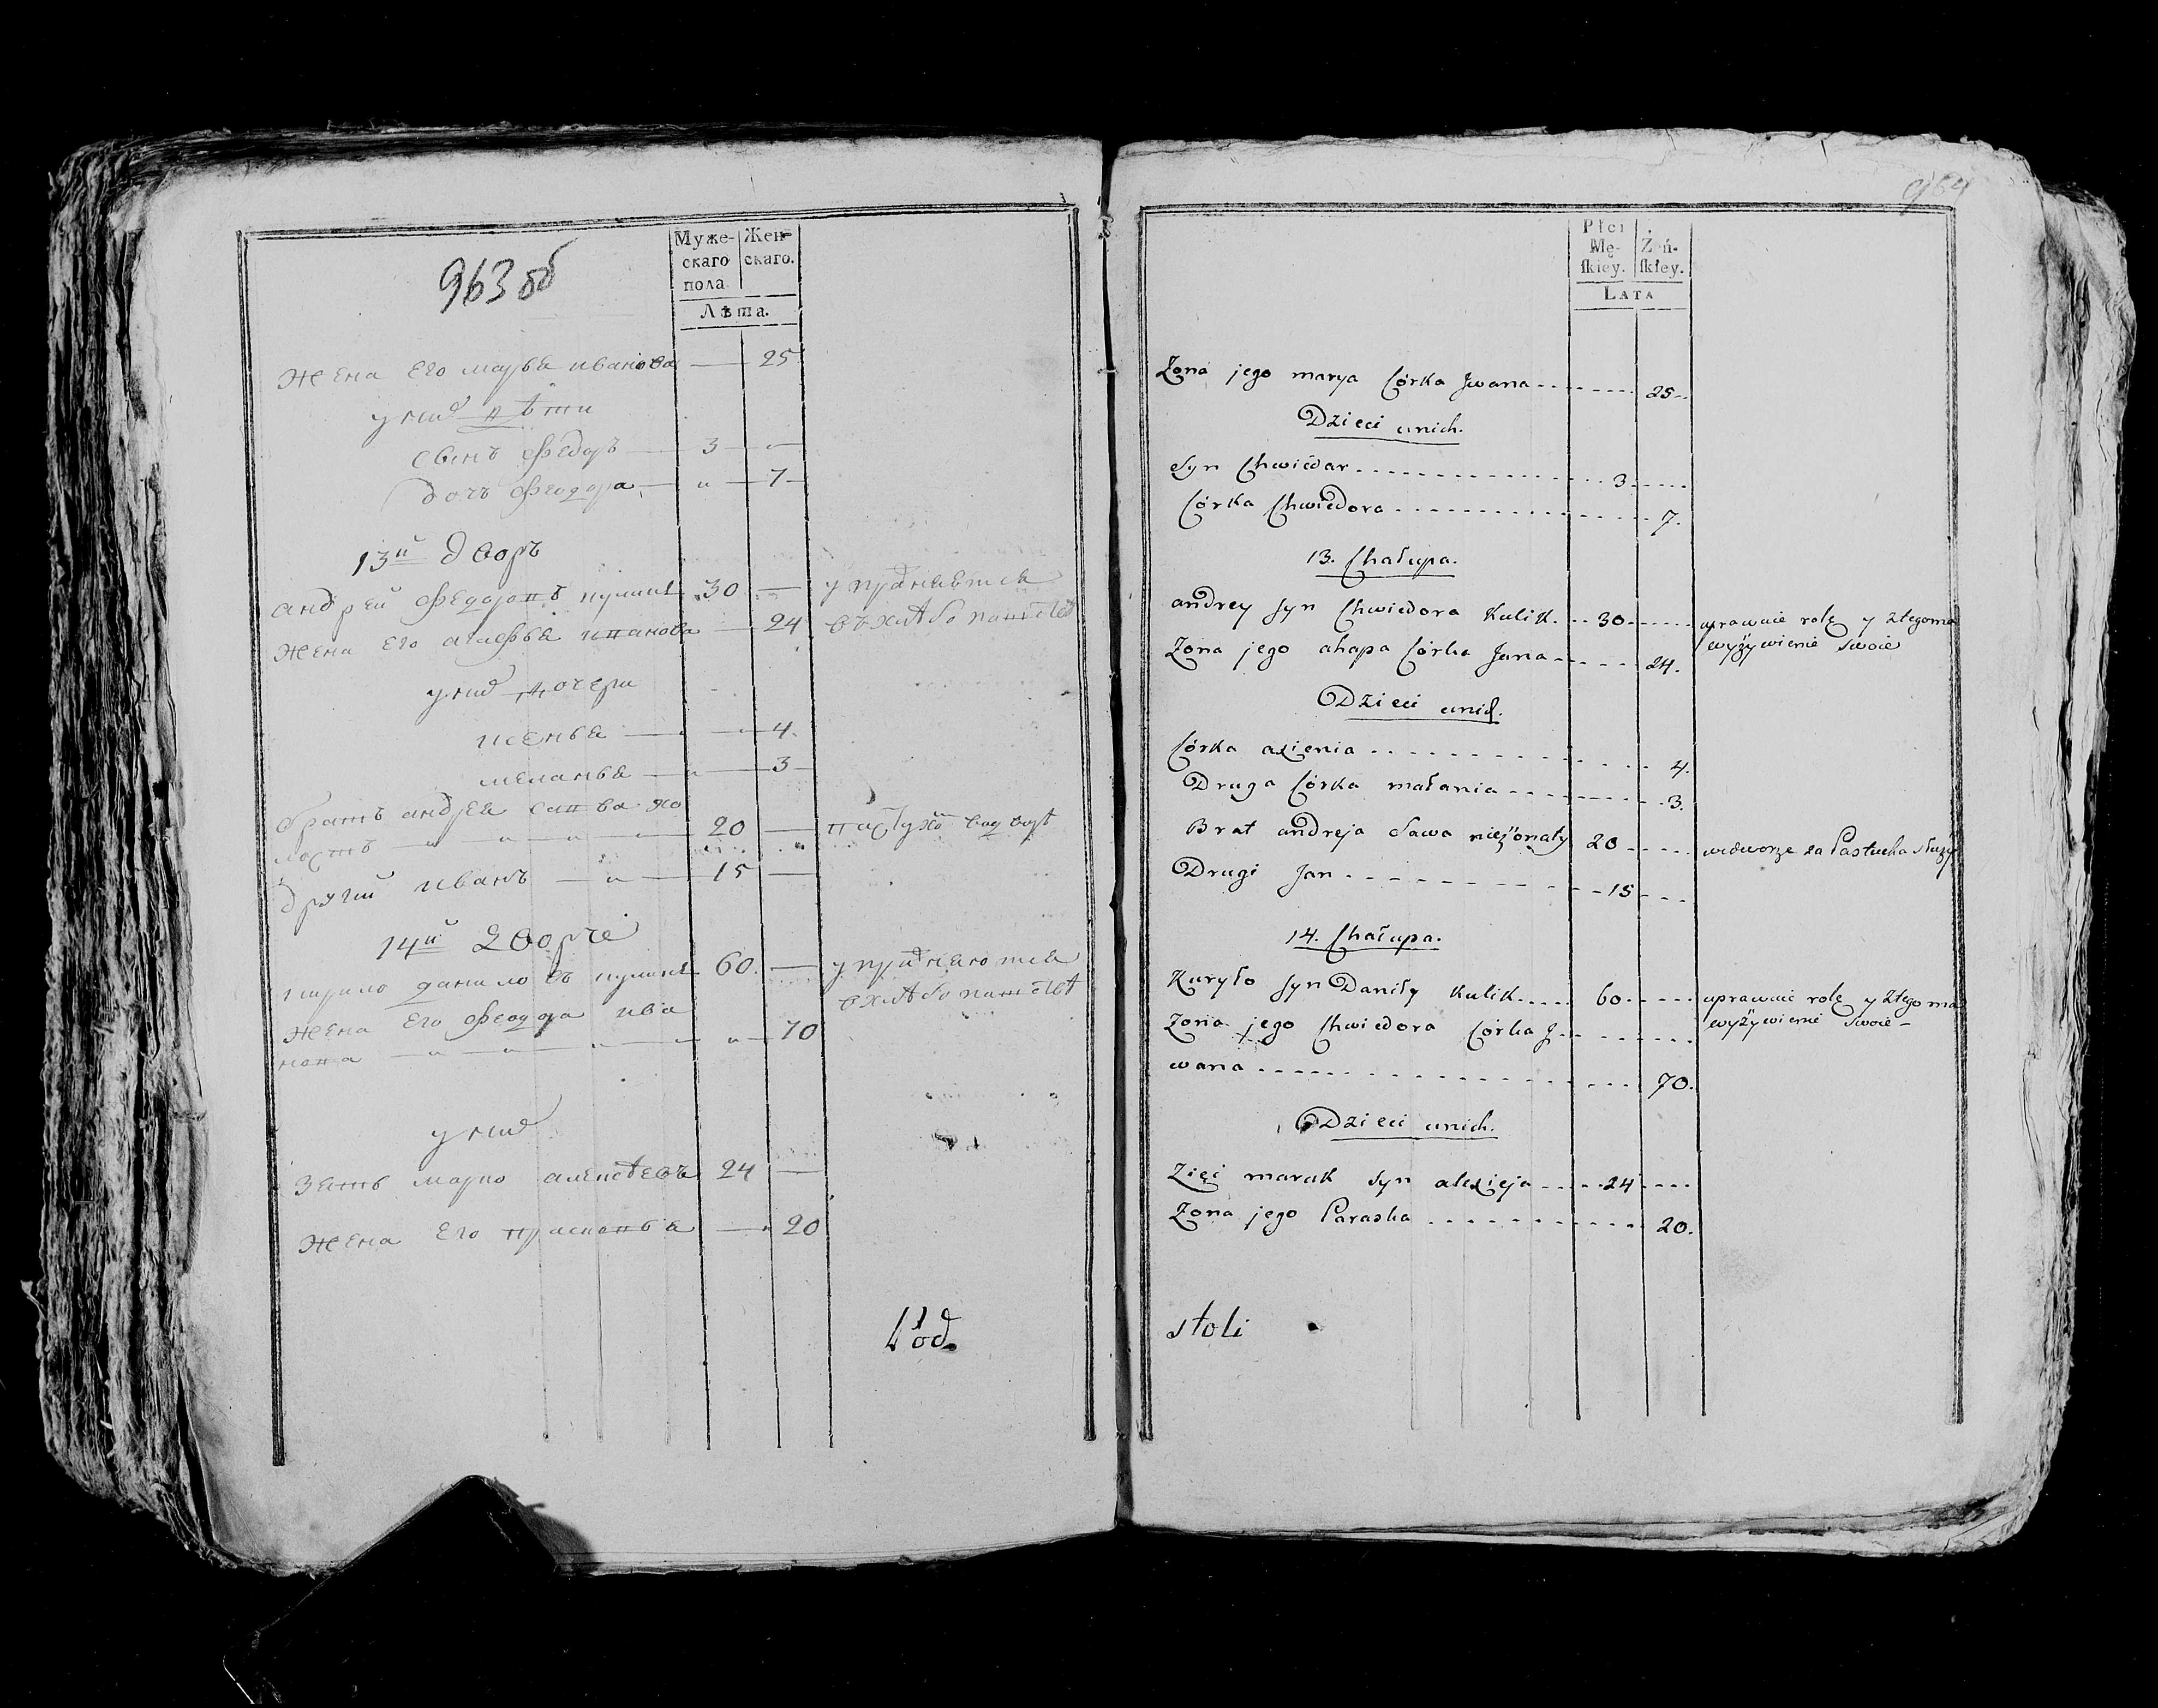 963 об
Муже- Жен-
скаго скаго.
пола
Лѣта.
Жена его марья иванова — 25
у них дѣти
сынъ Федоръ — 3 — "
дочь Феодора — " — 7
13й дворъ
андрей Федоровъ кулик 30 — упражняется
Жена его агафья иванова — 24 в хлѣбопашестве
у них дочери
ксенья — — 4
меланья — " — 3
братъ андрея савва хо
лостъ — " — " — " — 20 — пастухом
другий иванъ — " — 15 —
14й дворъ
кирило данило въ кулик 60 — упражняются
в хлѣбопашест
Жена его Феодора ива
нова — " — " — " — " — 70
у них
зять марко алексѣевъ 24 —
Жена его прасковья — " 20
964
Płci
Mę- Żeń-
ſkiey. ſkley.
LATA
Zona jego marya Córka Jwana 25
Dzieci unich.
Syn Chwiedar 3
Córka Chwiedora 7.
13. Chałupa.
andrey Syn Chwiedora Kulik 30 uprawuie rolę y ztegoma
wyżywienie swoie
Zona jego ahapa Córka Jana 24.
Dzieci unich.
Córka axienia 4.
Druga Córka małania 3.
Brat andreja Sawa nieżonaty 20 wedworze za Pastucha służy
Drugi Jan 15
14. Chałupa.
Kuryło Syn Daniły Kulik 60 uprawuie rolę y ztego ma
wyżywienie swoie
Zona jego Chwiedora Córka J
wana 70.
Dzieci unich.
Zięć marak Syn alexieja 24
Zona jego Paraska 20.
stoli